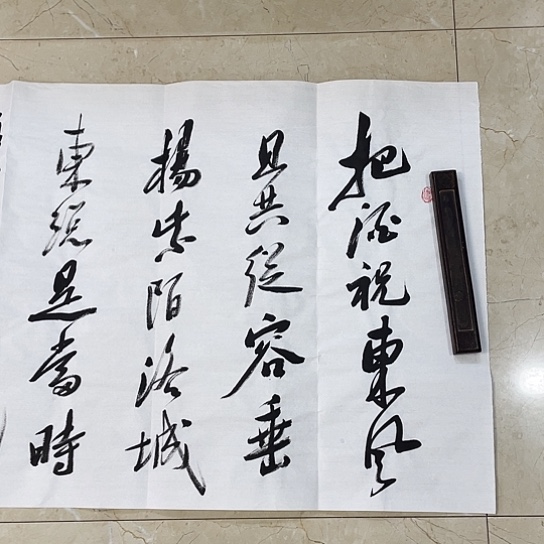 把酒祝東風
且共從容垂
揚紫陌洛城
東總是當時